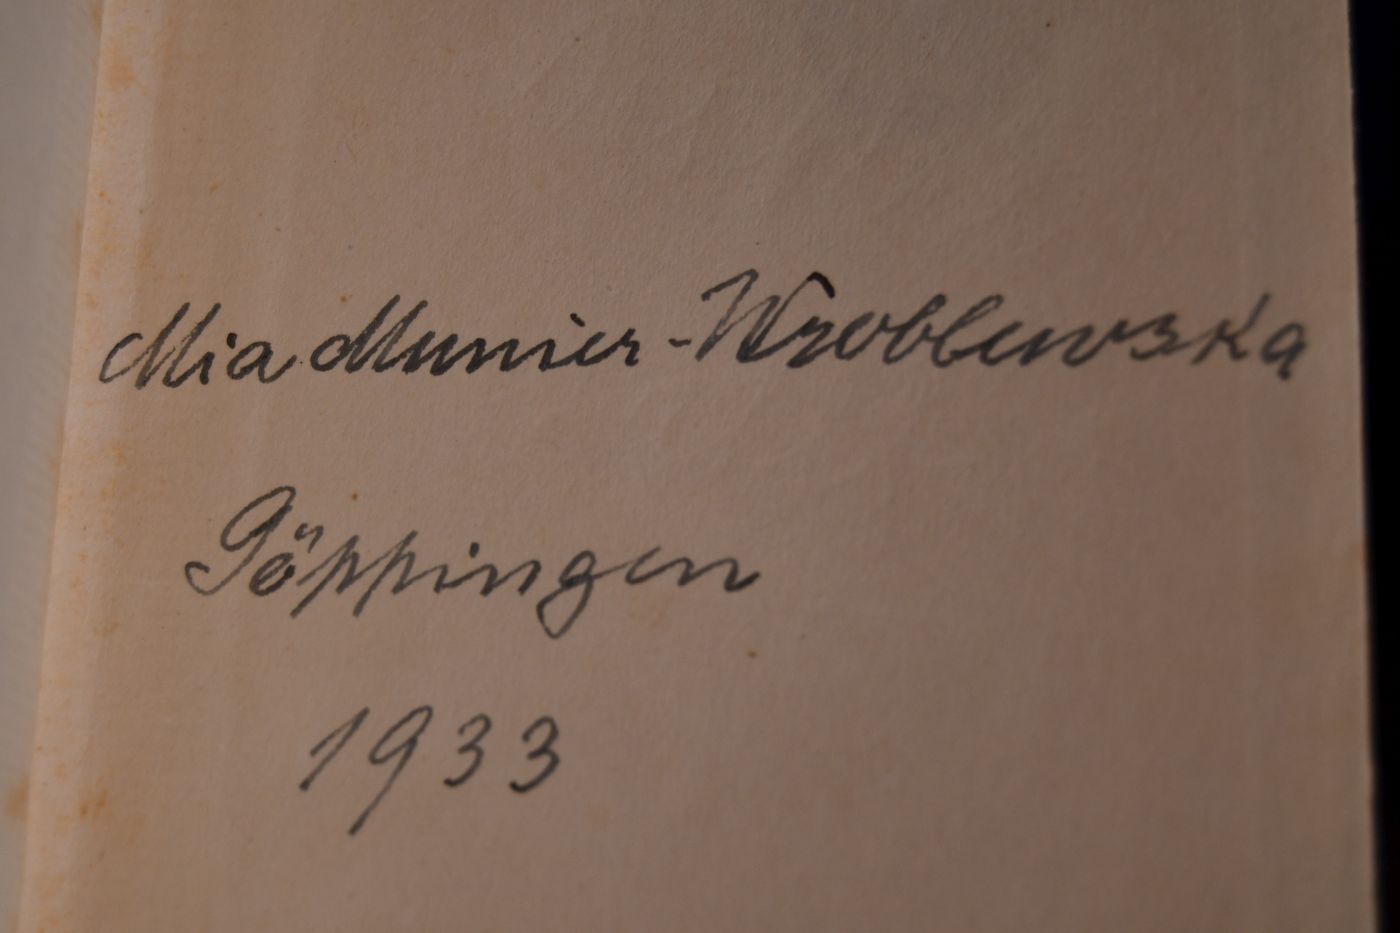 Mia Munier-Wroblewska
Göppingen
1933